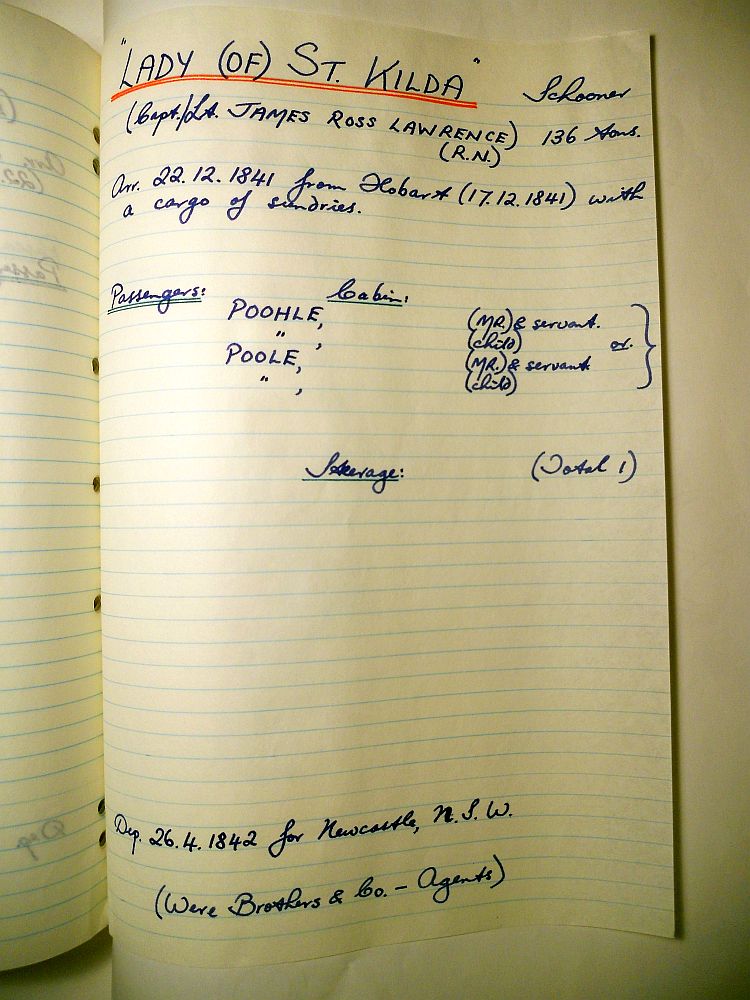 "LADY (OF) ST. KILDA" Schooner
(Capt./Lt. JAMES ROSS LAWRENCE) 136 tons.
(R.N.)
Arr. 22.12.1841 from Hobart (17.12.1841) with
a cargo of sundries.
Passengers: Cabin:
POOHLE, (MR.) & servant.
" , (child) or.
POOLE, (MR.) & servant
" , (child)
Steerage: (Total 1)
Dep. 26.4.1842 for Newcastle, N.S.W.
(Were Brothers & Co. - Agents)